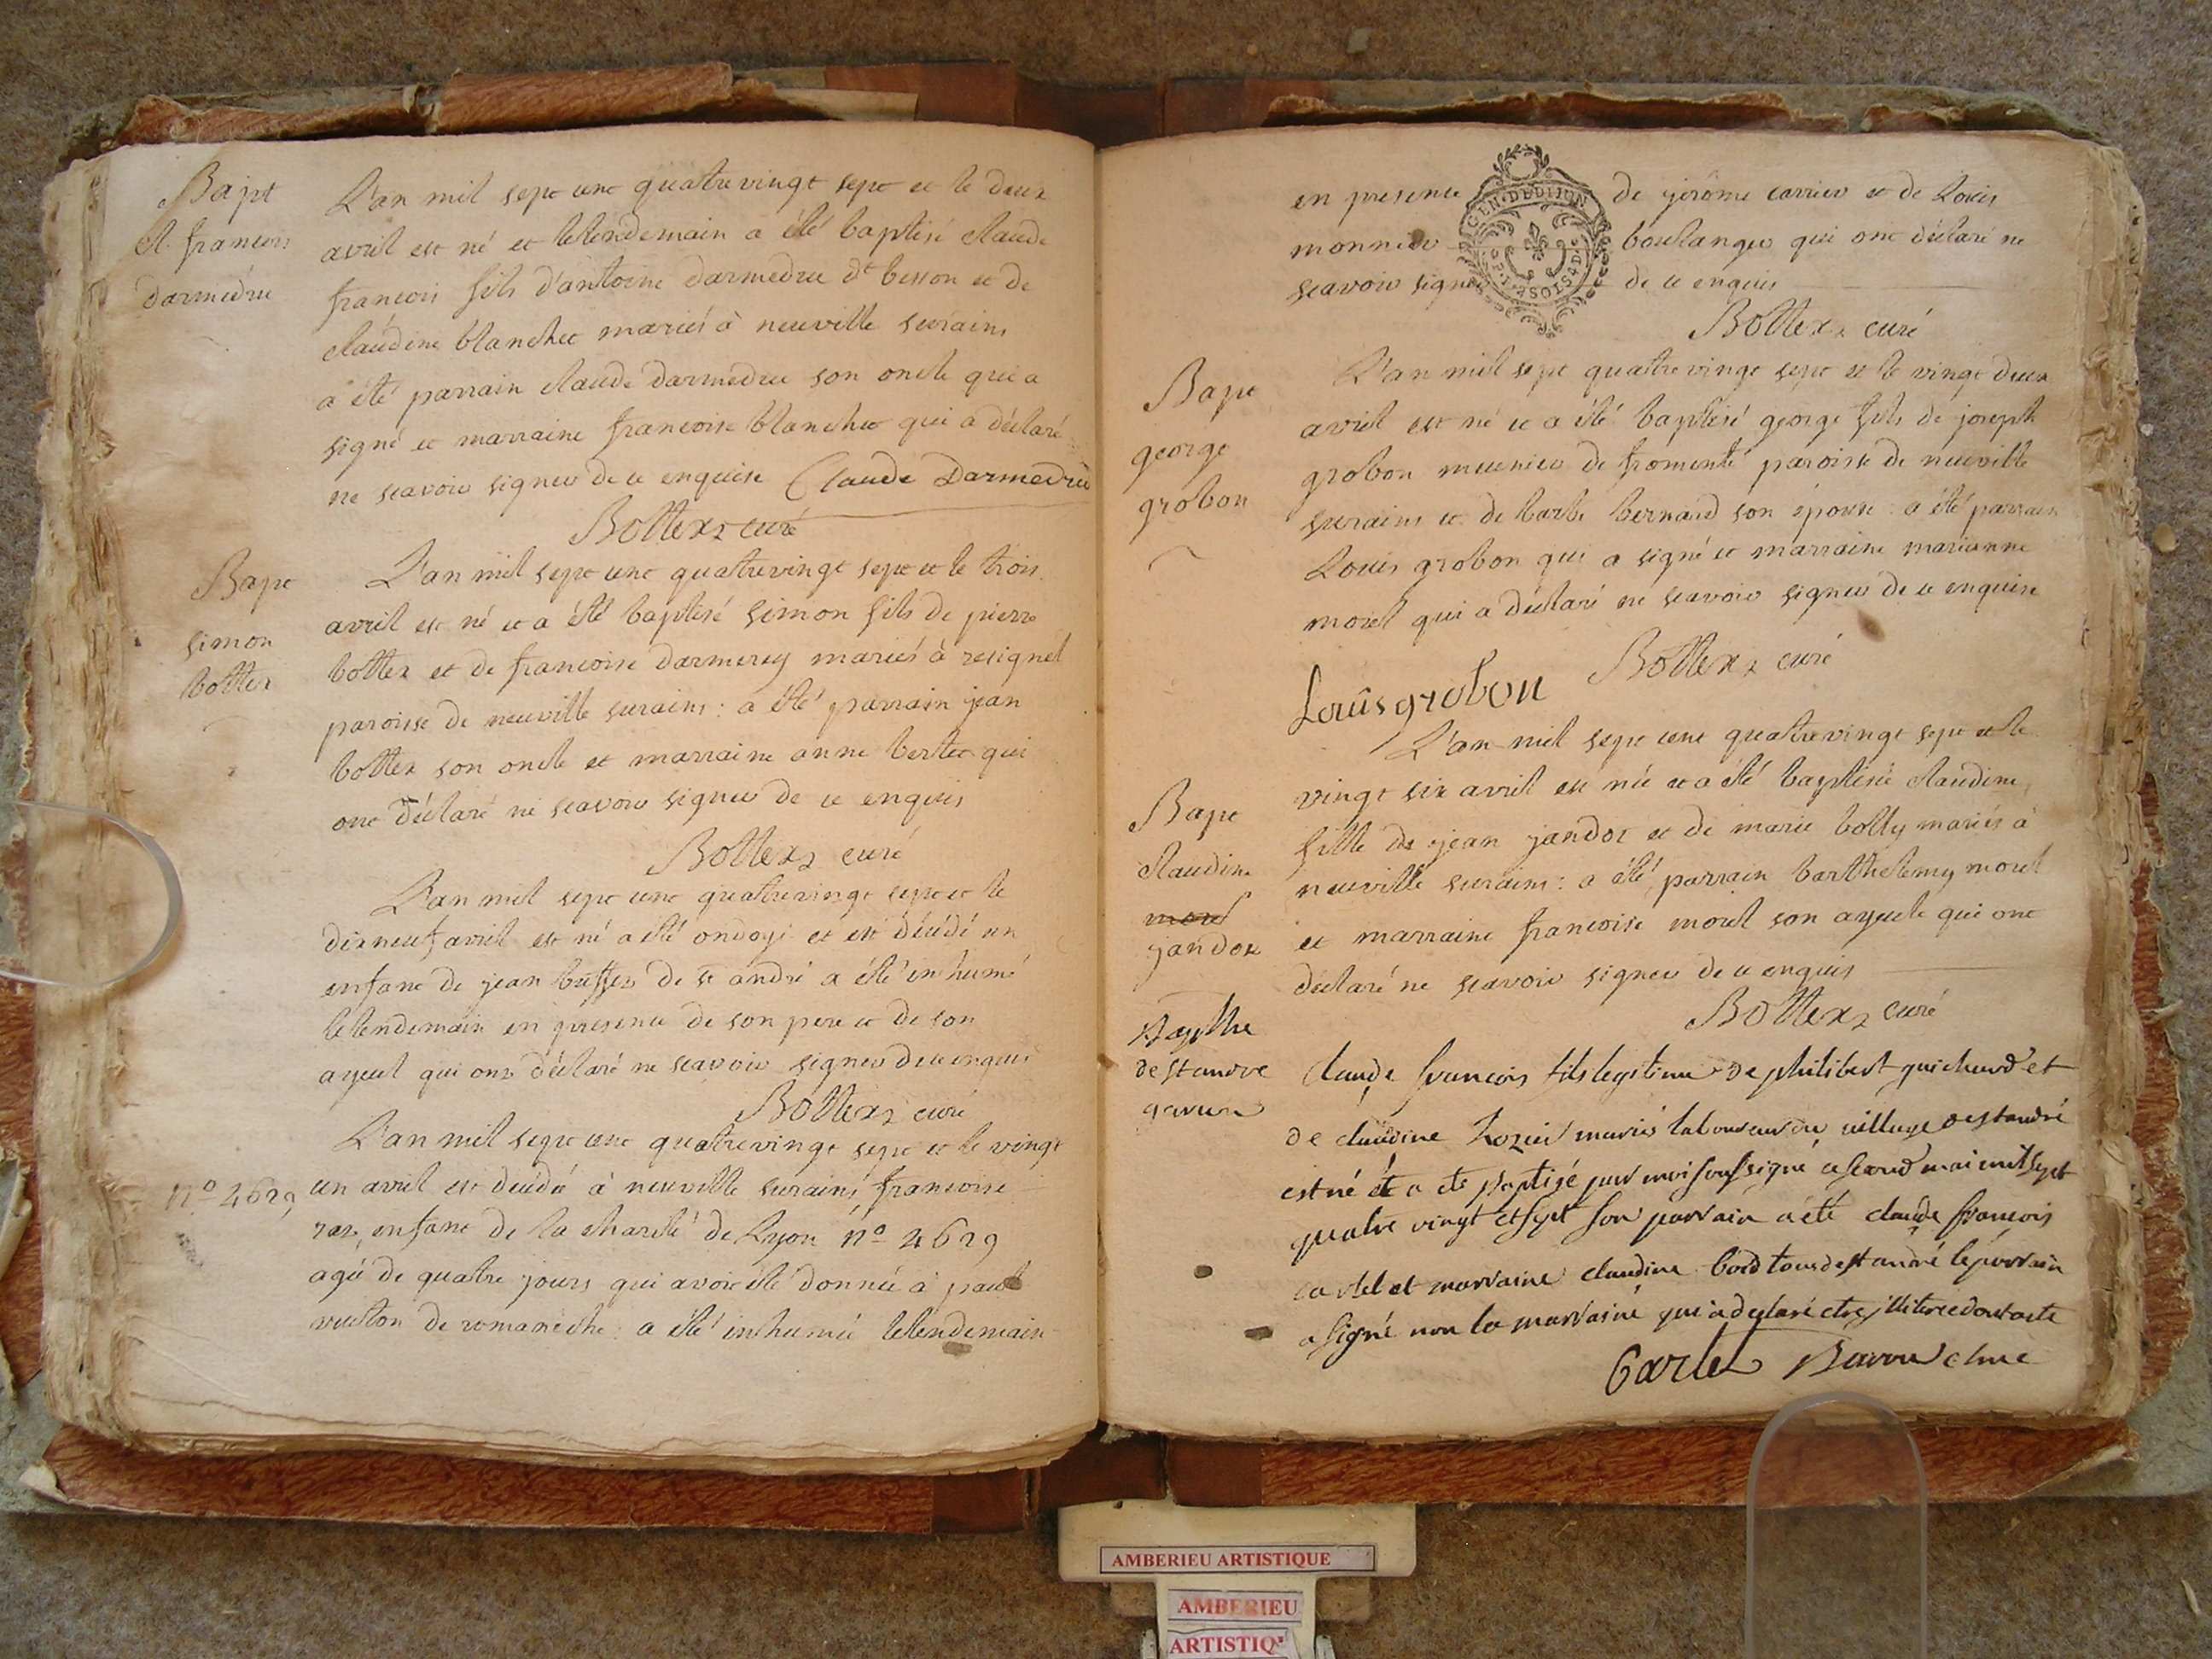 Bapt
cl. francois
darmedru
L'an mil sept cent quatrevingt sept et le deux
avril est né et le lendemain a été baptisé claude
francois fils d'antoine darmedru dt besson et de
claudine blanchet mariés à neuville surains
a été parrain claude darmedru son oncle qui a
signé et marraine francoise blanchet qui a déclaré
ne scavoir signer de ce enquise Claude Darmedru
Bottex curé
Bapt
simon
bottex
L'an mil sept cent quatrevingt sept et le trois
avril est né et a été baptisé simon fils de pierre
bottex et de francoise darmerey mariés à resignel
paroisse de neuville surains : a été parrain jean
bottex son oncle et marraine anne bertet qui
ont déclaré ne scavoir signer de ce enquis
Bottex curé
L'an mil sept cent quatrevingt sept et le
dixneuf avril est né a été ondoyé et est décédé un
enfant de jean de st andré a été inhumé
le lendemain en presence de son pere et de son
ayeul qui ont déclaré ne scavoir signer de ce enquis
Bottex curé
L'an mil sept cent quatrevingt sept et le vingt
n° 4629
un avril est décédé à neuville surains francoise
enfant de la charité de Lyon n° 4629
agée de quatre jours qui avoit été donnée à paul
vuiton de romaneche : a été inhumée le lendemain
en presence de jerôme carrier et de Louis
monnier boulanger qui ont déclaré ne
scavoir signer de ce enquis
GEN. DE DIJON
Bottex curé
Bapt
george
grobon
L'an mil sept quatre vingt sept et le vingt deux
avril est né et a été baptisé george fils de joseph
grobon meunier de fromenté paroisse de neuville
surains et de barbe bernard son épouse : a été parrain
Louis grobon qui a signé et marraine marianne
morel qui a déclaré ne scavoir signer de ce enquise
Bottex curé
Louis grobon
L'an mil sept cent quatrevingt sept et le
Bapt
claudine
morel
jandot
vingt six avril est née et a été baptisée claudine
fille de jean jandot et de marie bolly mariés à
neuville surains : a été parrain barthelemy morel
et marraine francoise morel son ayeule qui ont
déclaré ne scavoir signer de ce enquis
Bottex curé
Bapthe
de st andre
claude francois fils legitime de philibert guichard et
de claudine mariés laboureur du village de st andré
est né et a ete baptisé par moi soussigné ce second mai mil sept
quatre vingt et sept son parrain a été claude francois
cartel et marraine claudine bord tous de st andré le parrain
a signé non la marraine qui a declaré etre illiteree dont acte
Cartel
AMBERIEU ARTISTIQUE
AMBERIEU
ARTISTIQ